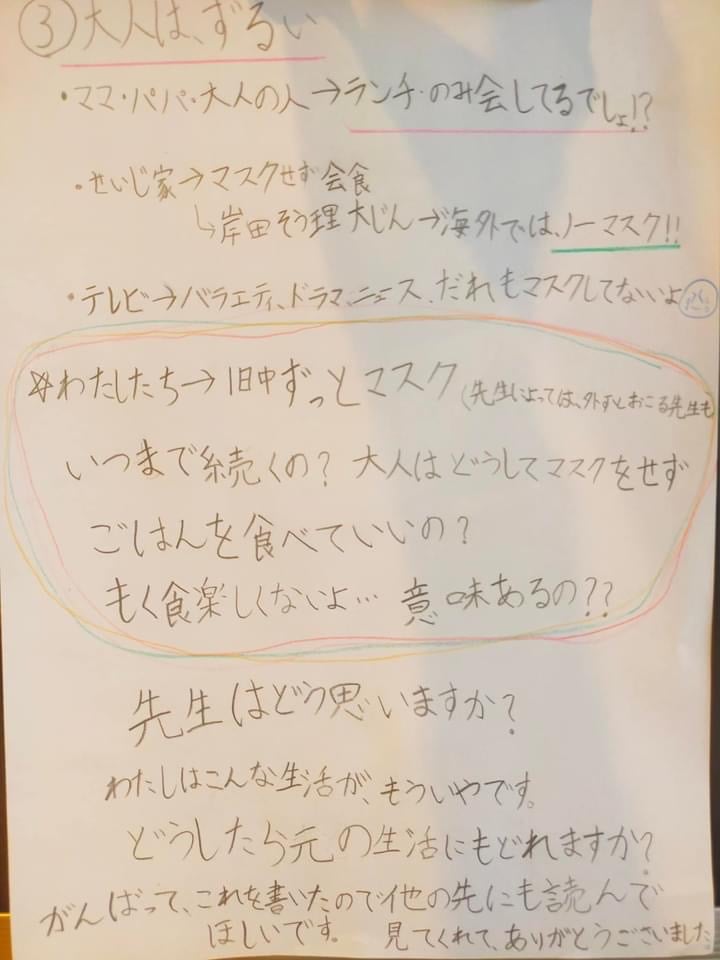 ③大人は、ずるい
・ママ・パパ・大人の人→ランチ・のみ会してるでしょ!?
・せいじ家→マスクせず会食
↳岸田そう理大じん→海外では、ノーマスク!!
・テレビ→バラエティ、ドラマ、ニュース、だれもマスクしてないよ
☆わたしたち→1日中ずっとマスク(先生によっては、外すとおこる先生も
いつまで続くの? 大人はどうしてマスクをせず
ごはんを食べていいの?
もく食楽しくないよ… 意味あるの??
先生はどう思いますか?
わたしはこんな生活が、もういやです。
どうしたら元の生活にもどれますか?
がんばって、これを書いたので他の先にも読んで
ほしいです。 見てくれて、ありがとうございました。